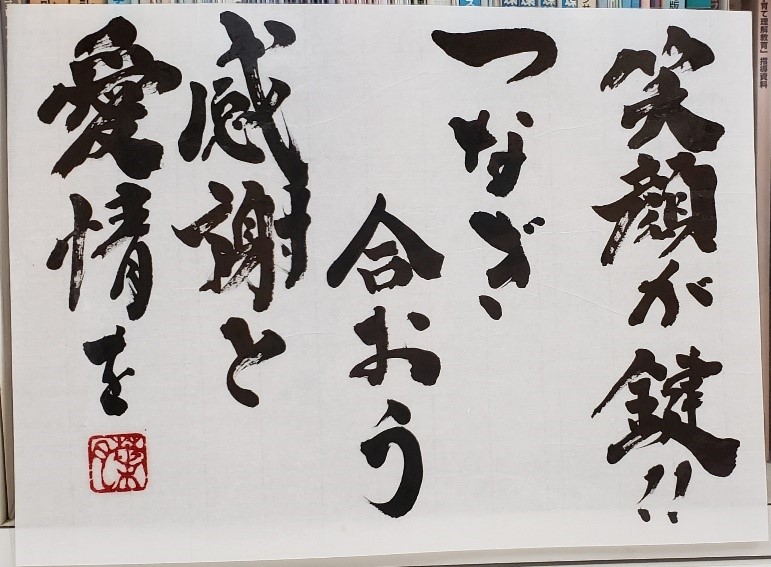 笑顔が鍵!!
つなぎ
合おう
感謝と
愛情を
育て理解教育」指導資料